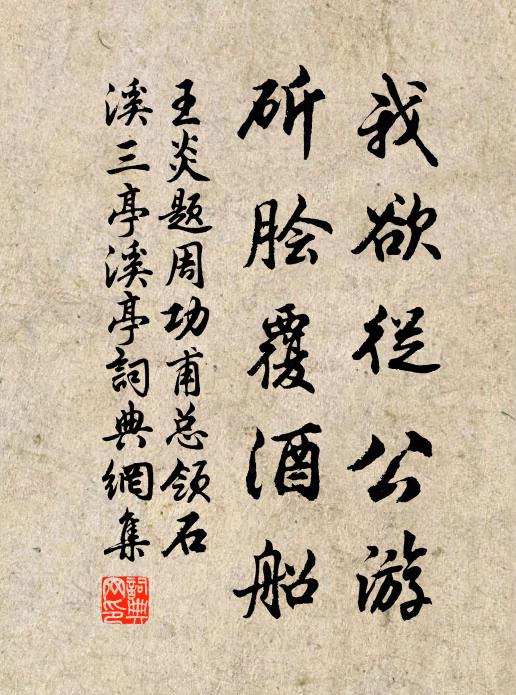 我欲從公游
斫脍覆酒船
王炎题周功甫总领石
溪三亭溪亭詞典網集
詞典网印